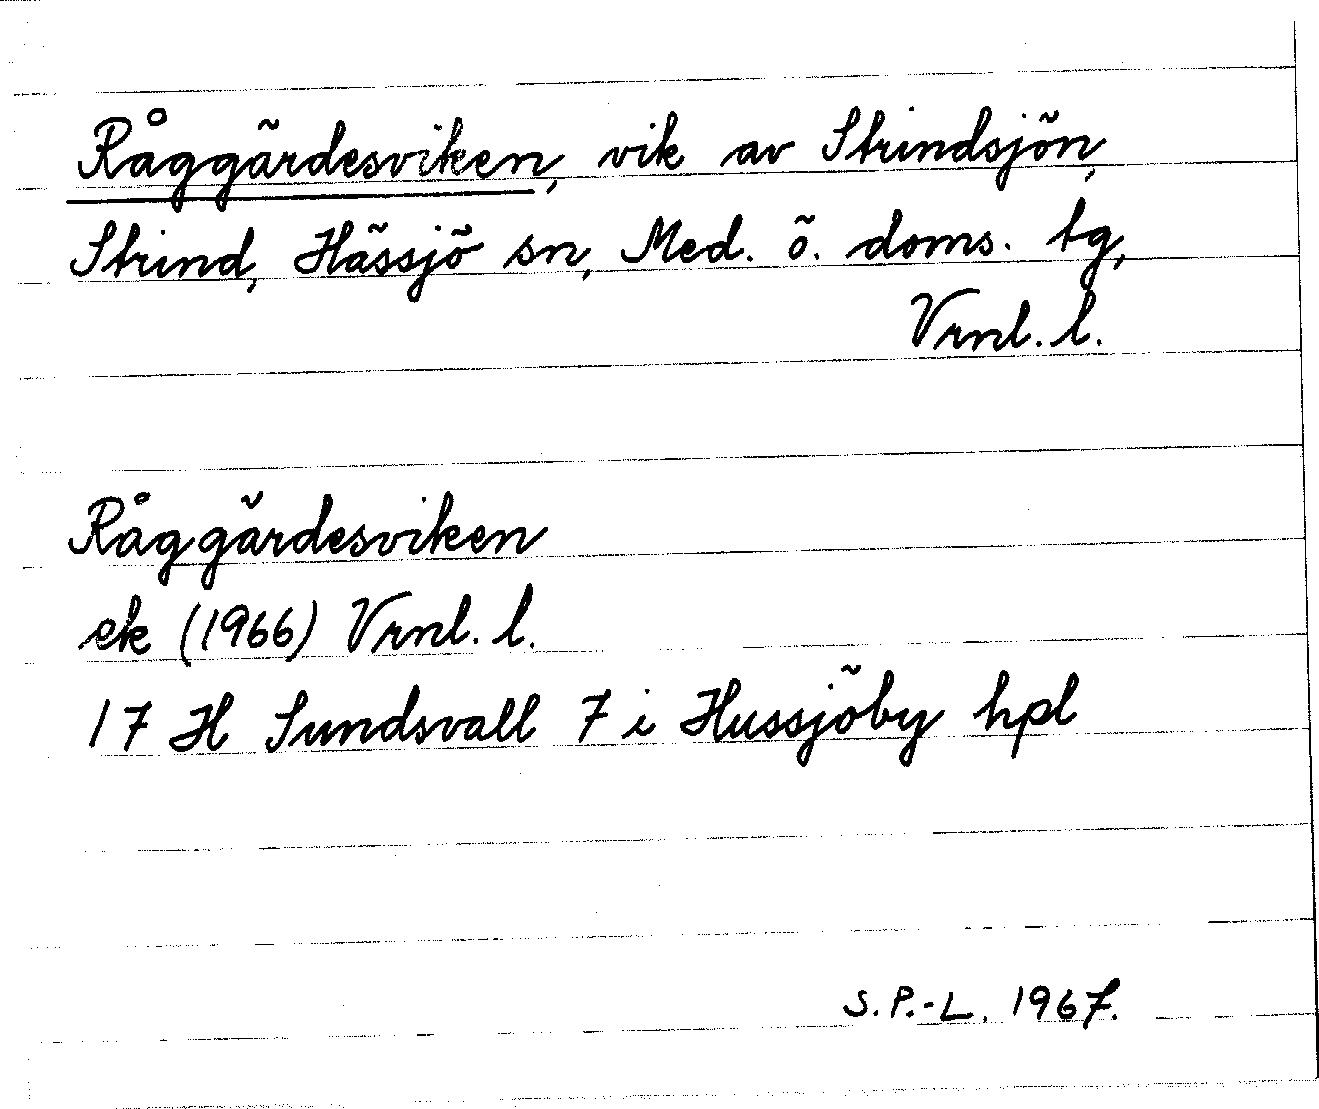 Råggärdesviken, vik av Strindsjön,
Strind, Hässjö sn, Med. ö. doms. tg,
Vrnl. l.
Råggärdesviken
ek (1966) Vrnl. l.
17 H Sundsvall 7 i Hussjöby hpl
S.P.-L. 1967.